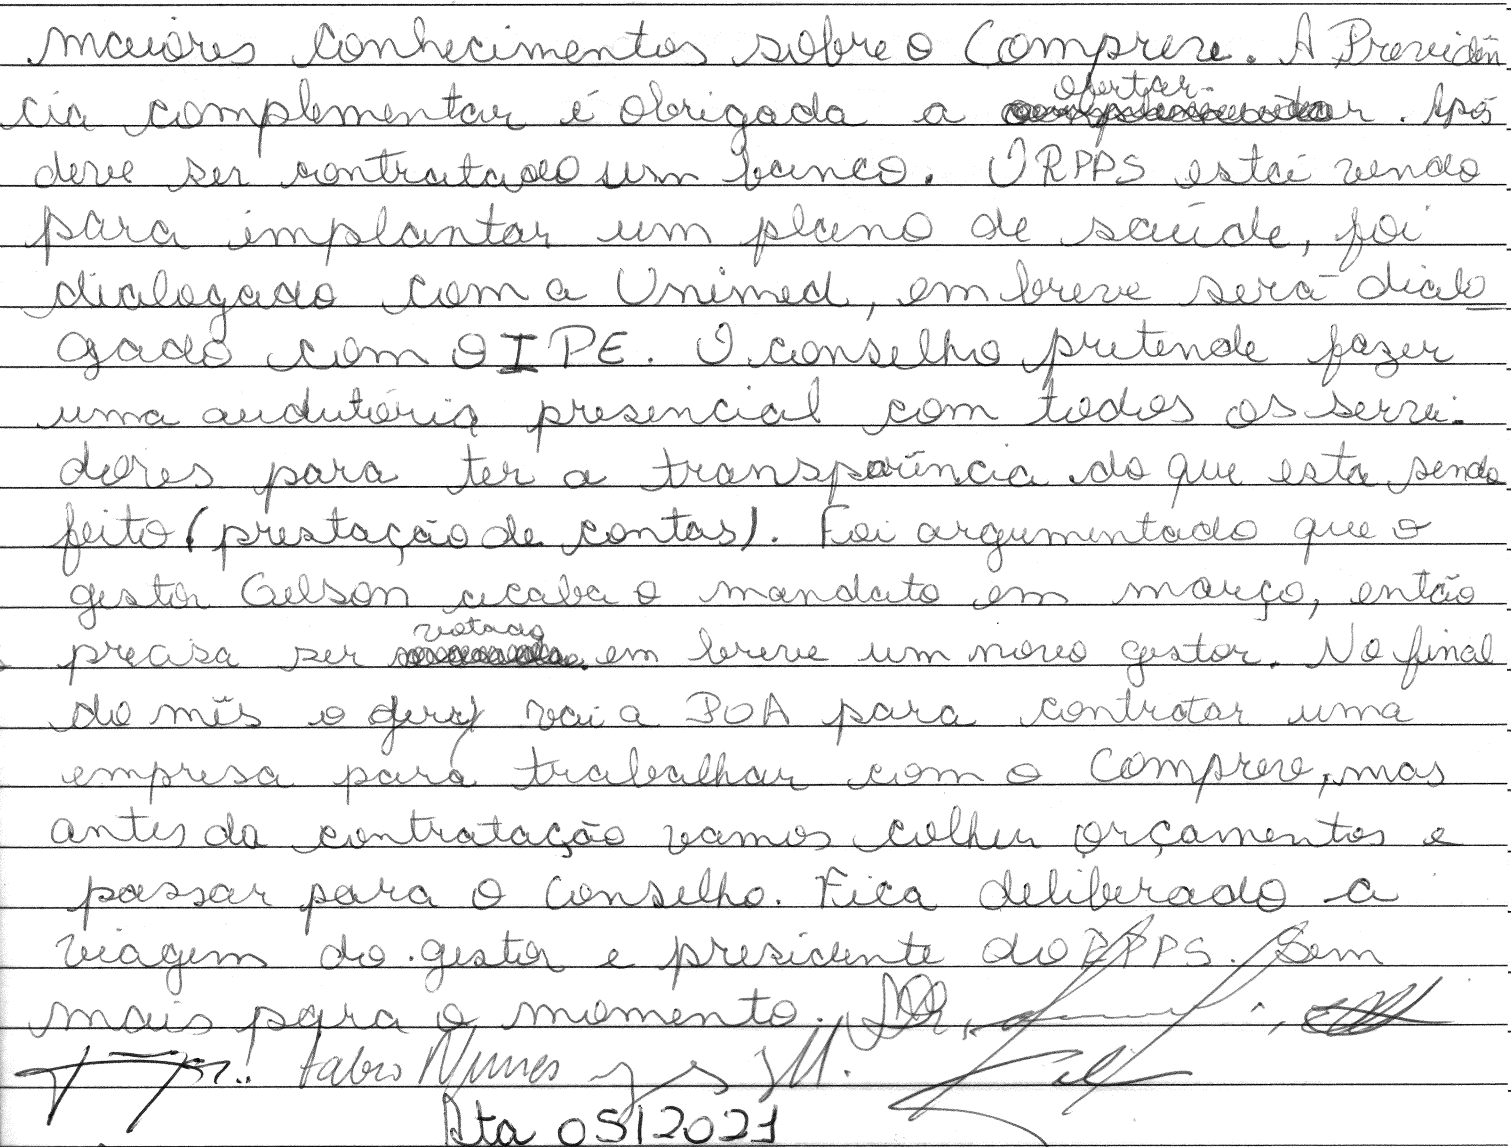 maiores conhecimentos sobre o Comprere. A Previdên
cia complementar é obrigada a ofertar. Após
deve ser contratado um banco. O RPPS está vendo
para implantar um plano de saúde, foi
dialogado com a Unimed, em breve será dialo
gado com o IPE. O conselho pretende fazer
uma audutória presencial com todos os servi-
dores para ter a transparência do que esta sendo
feito (prestação de contas). Foi argumentado que o
gestor Gelson acaba o mandato em março, então
precisa ser votado em breve um novo gestor. No final
do mês o vai a POA para contratar uma
empresa para trabalhar com o Comprere, mas
antes da contratação vamos colher orçamentos e
passar para o Conselho. Fica deliberado a
viagem do gestor e presidente do RPPS. Sem
mais para o momento.
Fabio Nunes
Ata 05/2021